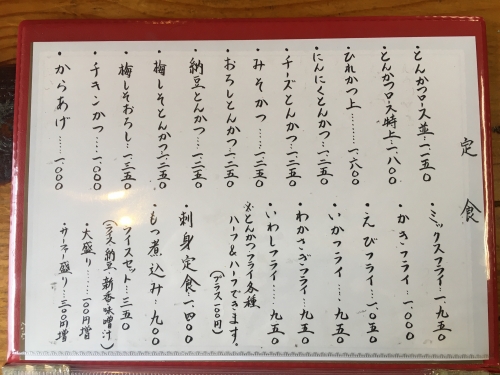 定食
・とんかつロース並…一、一五〇
・とんかつロース特上…一、八〇〇
・ひれかつ上………一、六〇〇
・にんにくとんかつ…一、二五〇
・チーズとんかつ…一、二五〇
・みそかつ……一、二五〇
・おろしとんかつ…一、二五〇
・納豆とんかつ…一、二五〇
・梅しそとんかつ…一、二五〇
・梅しそおろし…一、二五〇
・チキンかつ…一、〇〇〇
・からあげ……一、〇〇〇
・ミックスフライ…一、九五〇
・かきフライ…一、〇〇〇
・えびフライ…一、〇五〇
・いかフライ……九五〇
・わかさぎフライ…九五〇
・いわしフライ…九五〇
※とんかつフライ各種
ハーフ&ハーフできます。
(プラス一〇〇円)
・刺身定食…一、四〇〇
・もつ煮込み…九〇〇
・ライスセット…三五〇
(ライス・納豆・新香・味噌汁)
・大盛り……一〇〇円増
・サーファー盛り…三〇〇円増